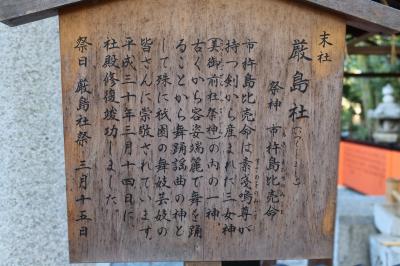 末社
厳島社
いつくしましゃ
祭神 市杵島比売命
市杵島比売命は素戔嗚尊が
持つ剣から産まれた三女神
美御前社祭神の内の一神。
古くから容姿端麗で舞を踊
ることから舞踊謡曲の神と
して殊に祇園の舞妓芸妓の
皆さんに崇敬されています。
平成三十年三月十四日に
社殿修復竣功しました。
祭日 厳島社祭 三月十五日